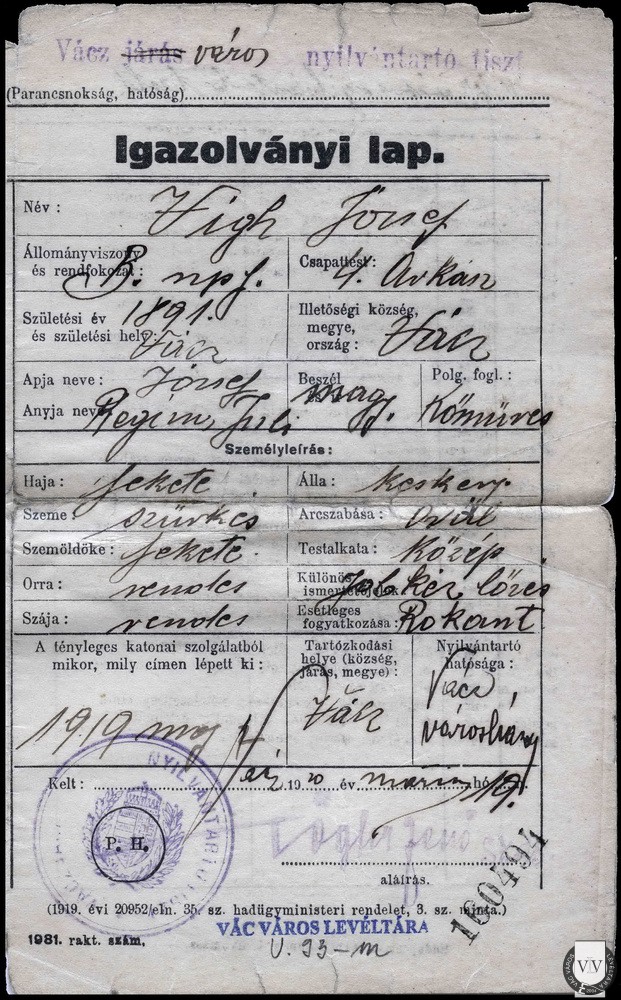 Vácz járás város nyilvántartó tiszt
(Parancsnokság, hatóság)
Igazolványi lap.
Név : Vigh József
Állományviszony és rendfokozat : B. npf.
Csapattest : 4. Árkász
Születési év és születési hely : 1891. Vácz
Illetőségi község, megye, ország : Vácz
Apja neve : József
Anyja neve Regina Juli
Beszél mag.
Polg. fogl. : Kőmüves
Személyleírás :
Haja : fekete
Álla : keskeny
Szeme : szürkés
Arcszabása : ovál
Szemöldöke : fekete.
Testalkata : közép
Orra : rendes
Különös ismertetőjelek Job kéz lövés
Szája : rendes
Esetleges fogyatkozása : Rokant
A tényleges katonai szolgálatból mikor, mily címen lépett ki :
1919
Tartózkodási helye (község, járás, megye) :
Vácz
Nyilvántartó hatósága :
Vácz,
Kelt : 1920 év hó 19.
NYILVÁNTARTÓ
P. H.
aláírás.
160494
(1919. évi 20952/eln. 35. sz. hadügyministeri rendelet, 3. sz. minta.)
VÁC VÁROS LEVÉLTÁRA
1981. rakt. szám,
V. 93-m